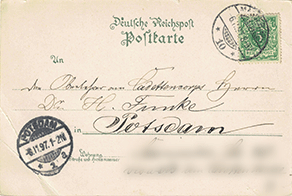 Deutsche Reichspost
Postkarte
An
den Oberlehrer am Cadettencorps Herrn
Dr. H. Funke
in Potsdam
Wohnung
POTSDAM
-8.11.97.1-2N.